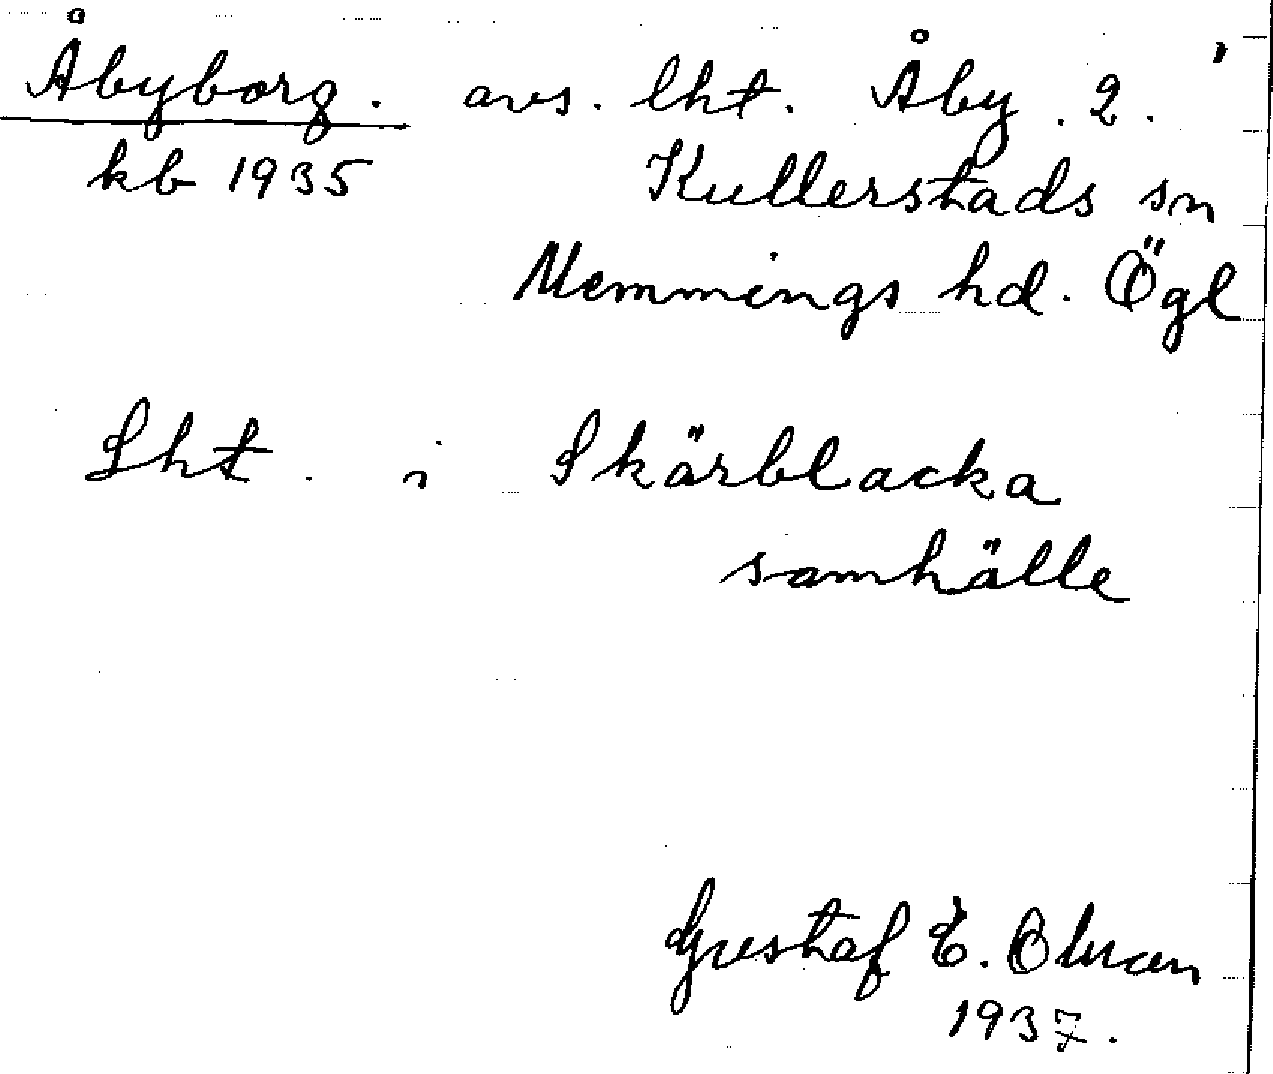 Åbyborg. avs. lht. Åby. 2.
kb 1935 Kullerstads sn
Memmings hd. Ögl
Lht. i Skärblacka
samhälle
Gustaf E.
1937.